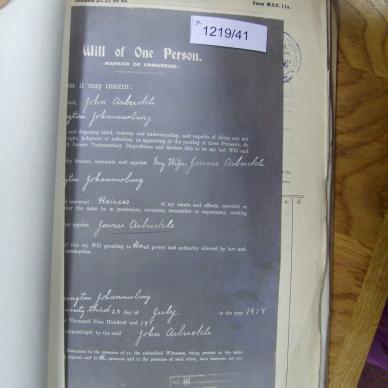 Form M.S.C. 11a.
1219/41
Will of One Person.
(MARRIED OR UNMARRIED)
it may concern:
John Arbuckle
Johannesburg
and disposing mind, memory and understanding, and capable of doing any act
thought, judgment or reflection, as appearing at the passing of these Presents, do
all former Testamentary Dispositions and declare this to be my last Will and
declare, nominate and appoint My Wife Jennie Arbuckle
Johannesburg
universal Heiress of my estate and effects, movable or
the same be in possession, reversion, remainder or expectancy, nothing
appoint Jennie Arbuckle
of this my Will granting to Her all power and authority allowed by law and
Johannesburg
twenty third 23 day of July in the year 1917
Thousand Nine Hundred and 17
by the said John Arbuckle
in the presence of us, the undersigned Witnesses, being present at the same
request and in the presence of each other, have hereunto set our